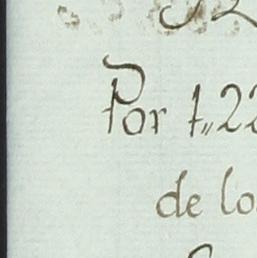 Por 1,,22
de lo